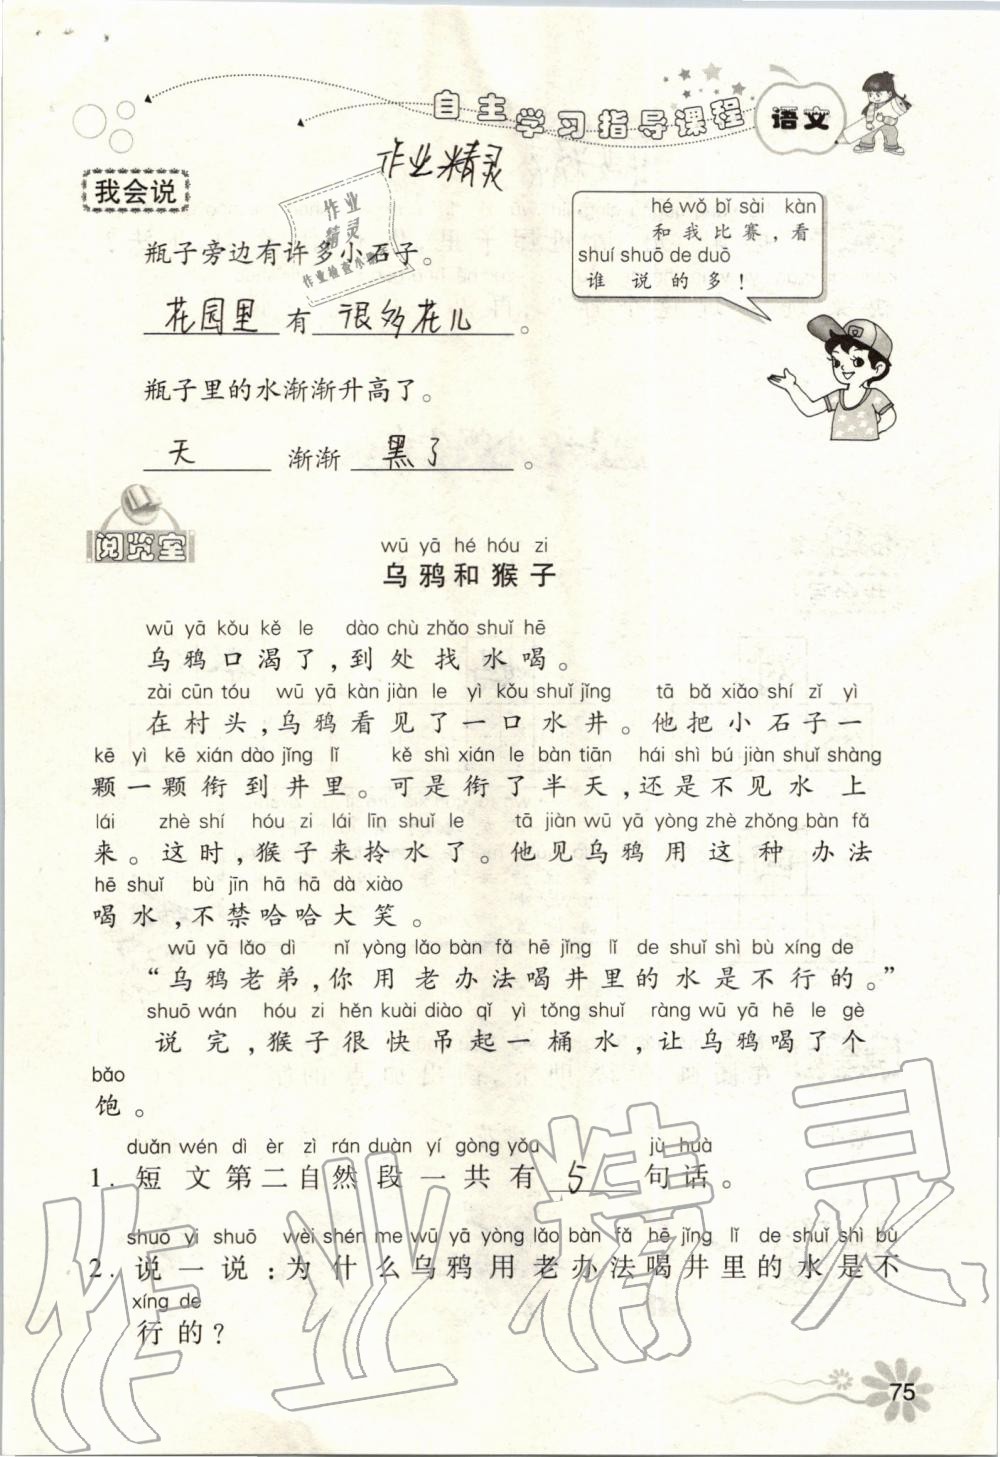 自主学习指导课程 语文
作业精灵
我会说
作业
精灵
作业检查小助手
hé wǒ bǐ sài kàn
和我比赛，看
shuí shuō de duō
谁说的多！
瓶子旁边有许多小石子。
花园里 有 很多花儿 。
瓶子里的水渐渐升高了。
天 渐渐 黑了 。
阅览室
wū yā hé hóu zi
乌鸦和猴子
wū yā kǒu kě le dào chù zhǎo shuǐ hē
乌鸦口渴了，到处找水喝。
zài cūn tóu wū yā kàn jiàn le yì kǒu shuǐ jǐng tā bǎ xiǎo shí zǐ yì
在村头，乌鸦看见了一口水井。他把小石子一
kē yì kē xián dào jǐng lǐ kě shì xián le bàn tiān hái shì bú jiàn shuǐ shàng
颗一颗衔到井里。可是衔了半天，还是不见水上
lái zhè shí hóu zi lái līn shuǐ le tā jiàn wū yā yòng zhè zhǒng bàn fǎ
来。这时，猴子来拎水了。他见乌鸦用这种办法
hē shuǐ bù jīn hā hā dà xiào
喝水，不禁哈哈大笑。
wū yā lǎo dì nǐ yòng lǎo bàn fǎ hē jǐng lǐ de shuǐ shì bù xíng de
“乌鸦老弟，你用老办法喝井里的水是不行的。”
shuō wán hóu zi hěn kuài diào qǐ yì tǒng shuǐ ràng wū yā hē le gè
说完，猴子很快吊起一桶水，让乌鸦喝了个
bǎo
饱。
duǎn wén dì èr zì rán duàn yí gòng yǒu jù huà
1. 短文第二自然段一共有 5 句话。
shuō yi shuō wèi shén me wū yā yòng lǎo bàn fǎ hē jǐng lǐ de shuǐ shì bù
2. 说一说：为什么乌鸦用老办法喝井里的水是不
xíng de
行的？
作业精灵
75